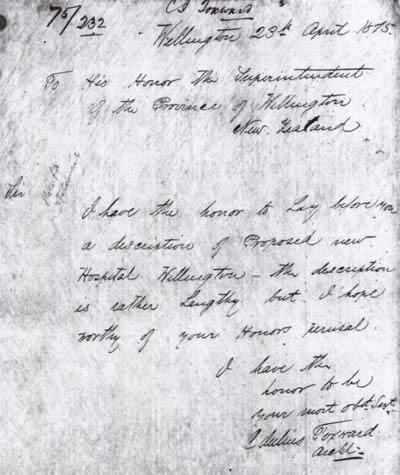 75/232
C J Toxward
Wellington 23th April 1875.
To His Honor the Superintendent
of the Province of Wellington
New Zealand
Sir
I have the honor to Lay before you
a description of Proposed new
Hospital Wellington – the description
is rather Lengthy but I hope
worthy of your Honors perusal
I have the
honor to be
your most obdt. Servt.
C Julius Toxward
Archt.